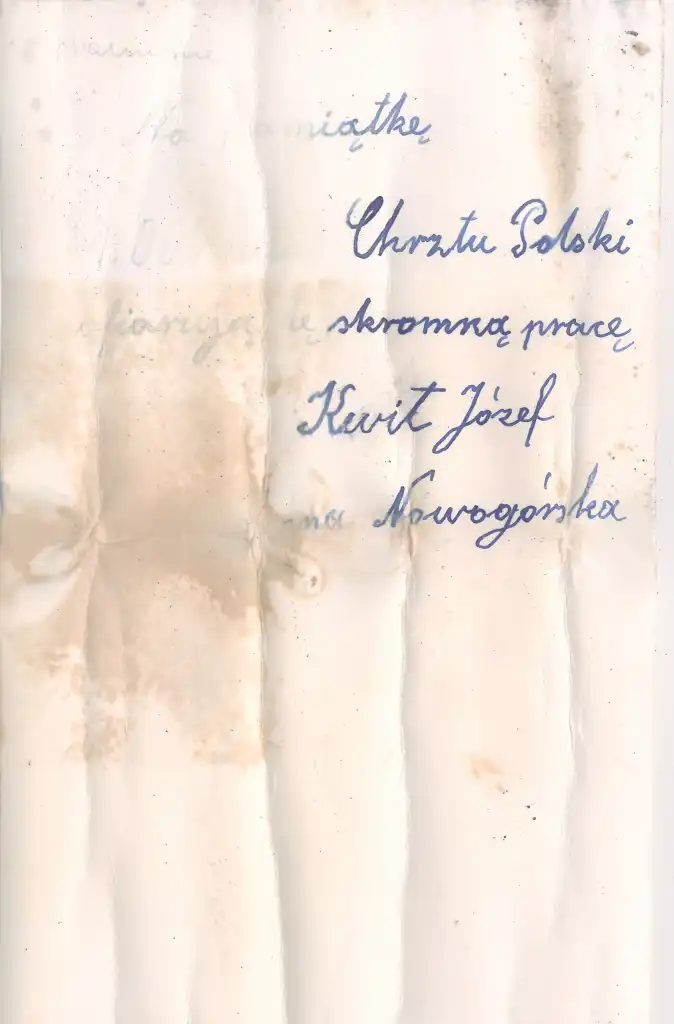 Na pamiątkę
Chrztu Polski
ofiarują tę skromną pracę
Kwit Józef
na Nowogórska